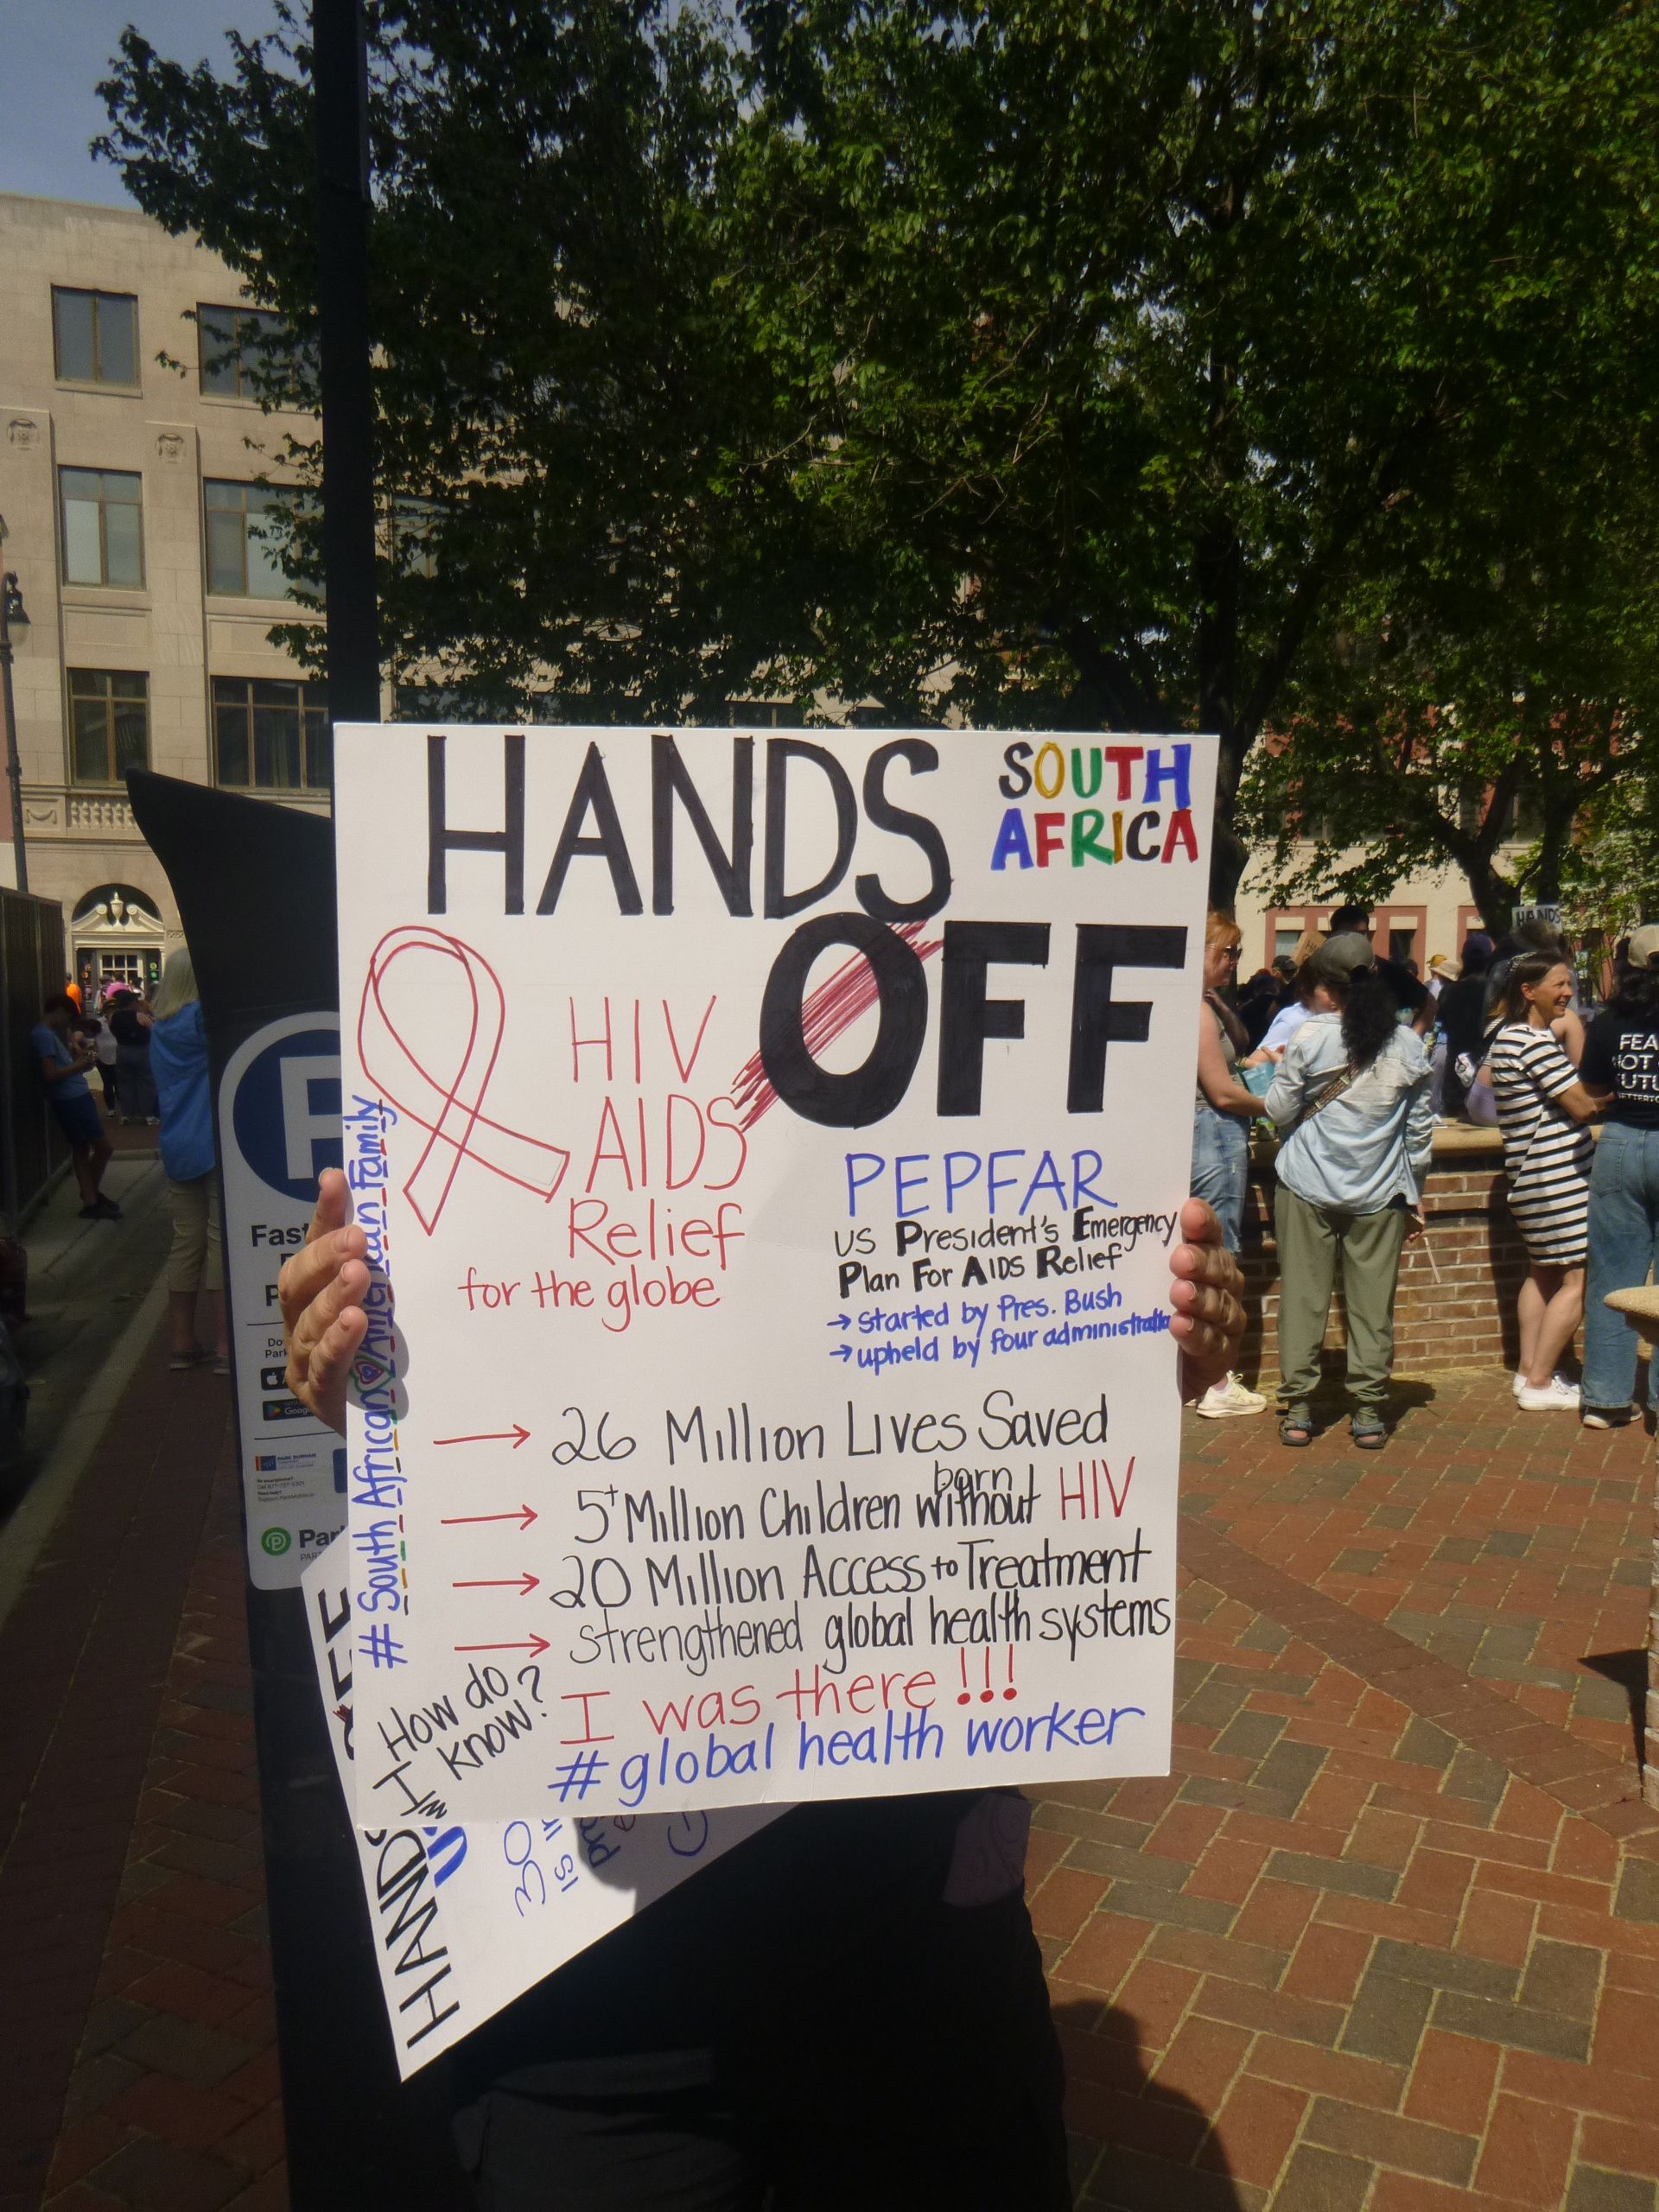 HANDS
SOUTH
AFRICA
OFF
HIV
AIDS
Relief
for the globe
PEPFAR
US President's Emergency
Plan For AIDS Relief
→ started by Pres. Bush
→ upheld by four administrations
# South African American Family
→ 26 Million Lives Saved
→ 5+ Million Children born without HIV
→ 20 Million Access to Treatment
→ strengthened global health systems
How do
I know?
I was there!!!
# global health worker
HANDS
30
is
P
Fast
P
Par
HANDS
FEA
NOT